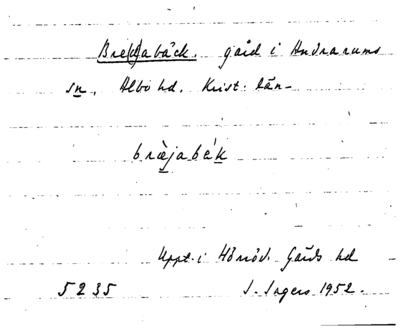 Bre(d)abäck. gård i Andrarums
sn, Albo hd. Krist. län
bræjabäk
Uppt. i Hörröd. Gärds hd
5235 I. Ingers 1952.